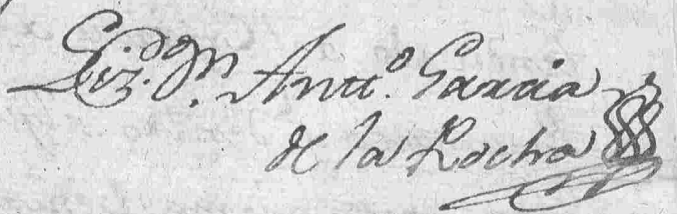 Liz.do Dn. Antto. Garcia
de la Rocha